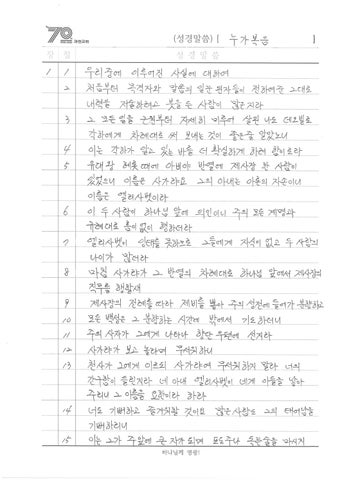 70
(성경말씀) [ 누가복음 ]
장 절 성경말씀
1 1 우리 중에 이루어진 사실에 대하여
2 처음부터 목격자와 말씀의 일꾼 된 자들이 전하여 준 그대로
내력을 저술하려고 붓을 든 사람이 많은지라
3 그 모든 일을 근원부터 자세히 미루어 살핀 나도 데오빌로
각하에게 차례대로 써 보내는 것이 좋은 줄 알았노니
4 이는 각하가 알고 있는 바를 더 확실하게 하려 함이로라
5 유대 왕 헤롯 때에 아비야 반열에 제사장 한 사람이
있었으니 이름은 사가랴요 그의 아내는 아론의 자손이니
이름은 엘리사벳이라
6 이 두 사람이 하나님 앞에 의인이니 주의 모든 계명과
규례대로 흠이 없이 행하더라
7 엘리사벳이 잉태를 못하므로 그들에게 자식이 없고 두 사람의
나이가 많더라
8 마침 사가랴가 그 반열의 차례대로 하나님 앞에서 제사장의
직무를 행할새
9 제사장의 전례를 따라 제비를 뽑아 주의 성전에 들어가 분향하고
10 모든 백성은 그 분향하는 시간에 밖에서 기도하더니
11 주의 사자가 그에게 나타나 향단 우편에 선지라
12 사가랴가 보고 놀라며 무서워하니
13 천사가 그에게 이르되 사가랴여 무서워하지 말라 너의
간구함이 들린지라 네 아내 엘리사벳이 네게 아들을 낳아
주리니 그 이름을 요한이라 하라
14 너도 기뻐하고 즐거워할 것이요 많은 사람도 그의 태어남을
기뻐하리니
15 이는 그가 주 앞에 큰 자가 되며 포도주나 독한 술을 마시지
하나님께 영광!